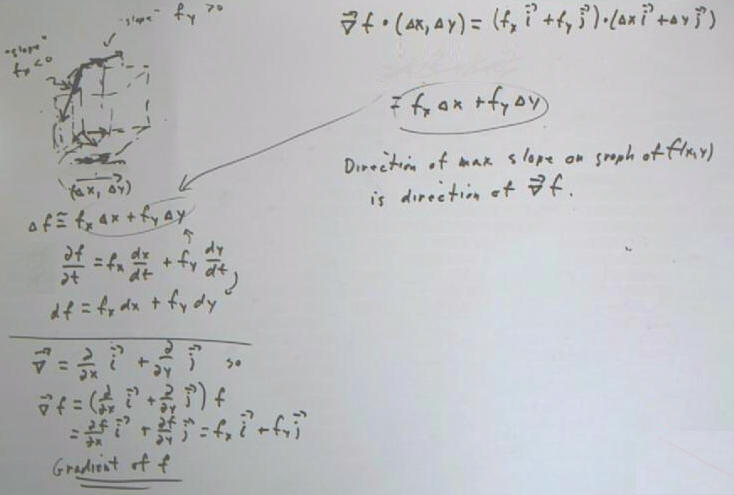 "slope" f_y > 0
"slope"
f_x < 0
(Δx, Δy)
Δf ≅ f_x Δx + f_y Δy
∂f/∂t = f_x dx/dt + f_y dy/dt
df = f_x dx + f_y dy
∇⃗ = ∂/∂x i⃗ + ∂/∂y j⃗ so
∇⃗f = (∂/∂x i⃗ + ∂/∂y j⃗) f
= ∂f/∂x i⃗ + ∂f/∂y j⃗ = f_x i⃗ + f_y j⃗
Gradient of f
∇⃗f · (Δx, Δy) = (f_x i⃗ + f_y j⃗) · (Δx i⃗ + Δy j⃗)
= f_x Δx + f_y Δy
Direction of max slope on graph of f(x,y)
is direction of ∇⃗f.